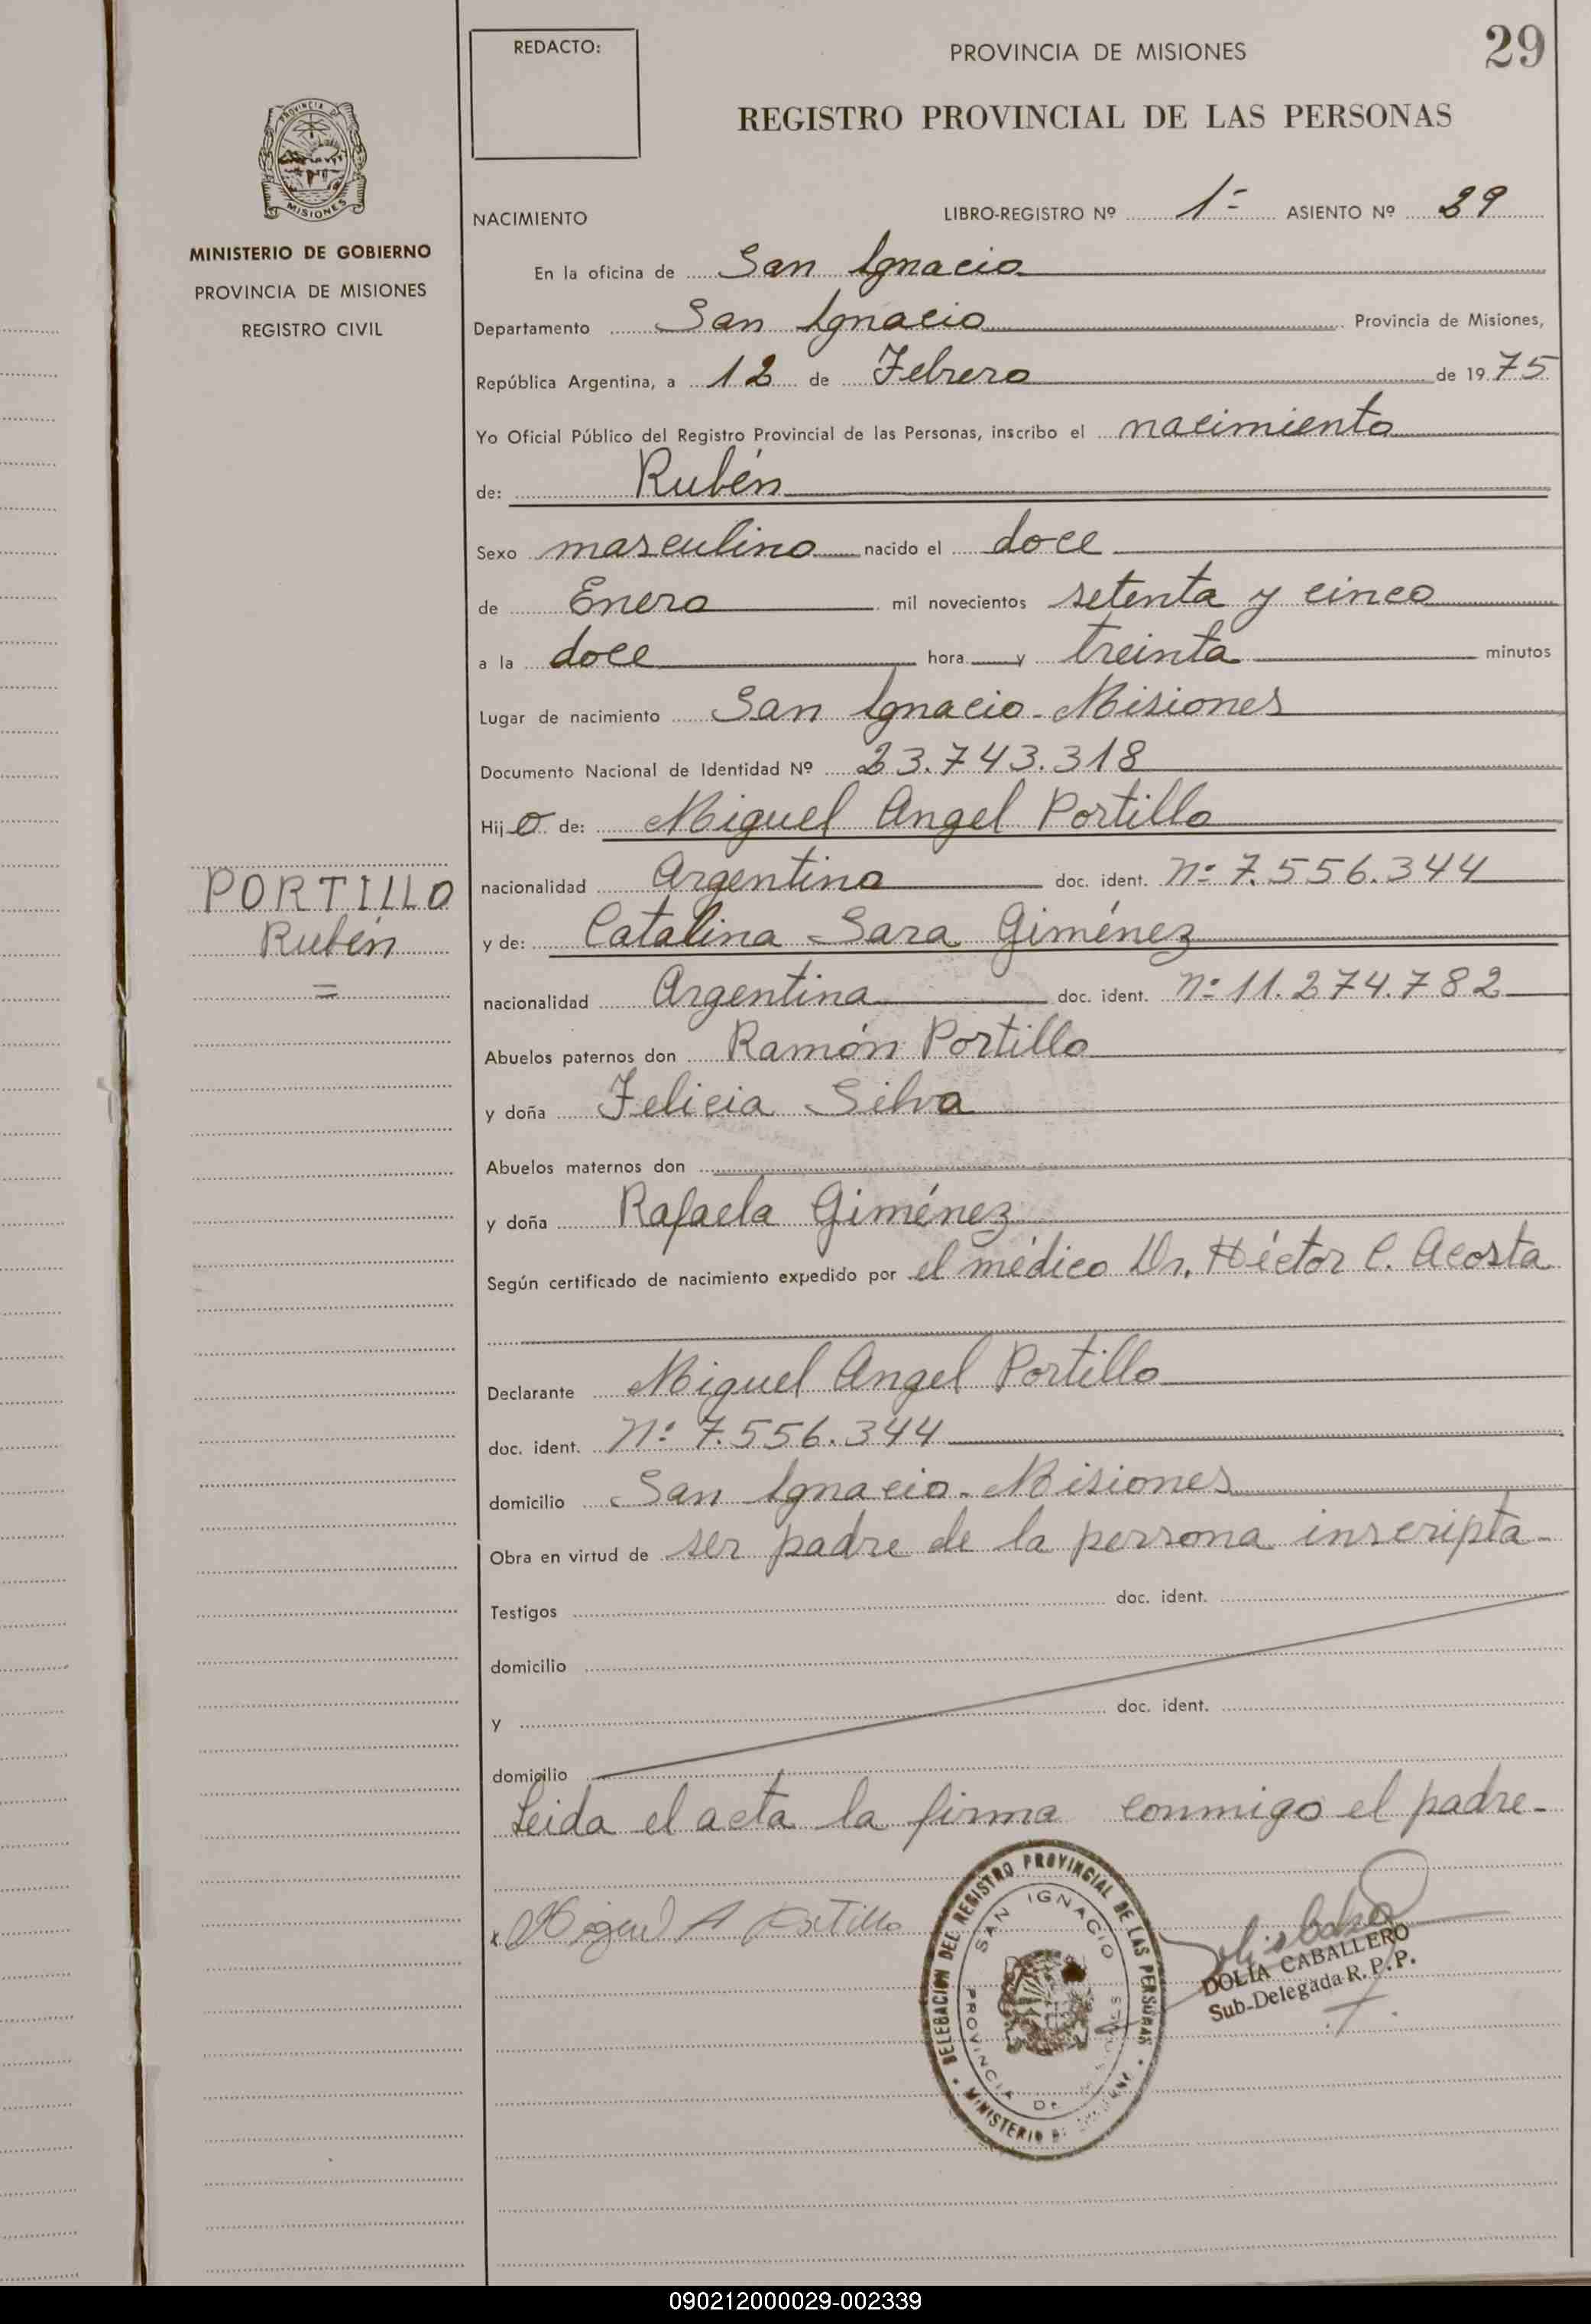 REDACTO:
PROVINCIA DE MISIONES
29
REGISTRO PROVINCIAL DE LAS PERSONAS
PROVINCIA DE
MISIONES
MINISTERIO DE GOBIERNO
PROVINCIA DE MISIONES
REGISTRO CIVIL
NACIMIENTO
LIBRO-REGISTRO Nº 1- ASIENTO Nº 29
En la oficina de San Ignacio
Departamento San Ignacio Provincia de Misiones,
República Argentina, a 12 de Febrero de 1975
Yo Oficial Público del Registro Provincial de las Personas, inscribo el nacimiento
de: Rubén
Sexo masculino nacido el doce
de Enero mil novecientos setenta y cinco
a la doce hora y treinta minutos
Lugar de nacimiento San Ignacio - Misiones
Documento Nacional de Identidad Nº 23.743.318
Hijo de: Miguel Angel Portillo
nacionalidad Argentino doc. ident. Nº 7.556.344
PORTILLO
Rubén
=
y de: Catalina Sara Giménez
nacionalidad Argentina doc. ident. Nº 11.274.782
Abuelos paternos don Ramón Portillo
y doña Felicia Silva
Abuelos maternos don
y doña Rafaela Giménez
Según certificado de nacimiento expedido por el médico Dr. Héctor C. Acosta
Declarante Miguel Angel Portillo
doc. ident. Nº 7.556.344
domicilio San Ignacio - Misiones
Obra en virtud de ser padre de la persona inscripta -
Testigos doc. ident.
domicilio
y doc. ident.
domicilio
Leida el acta la firma conmigo el padre -
x Miguel A Portillo
DELEGACIÓN DEL REGISTRO PROVINCIAL DE LAS PERSONAS
SAN IGNACIO
PROVINCIA DE MISIONES
MINISTERIO DE
DOLIA CABALLERO
Sub-Delegada R. P. P.
090212000029-002339